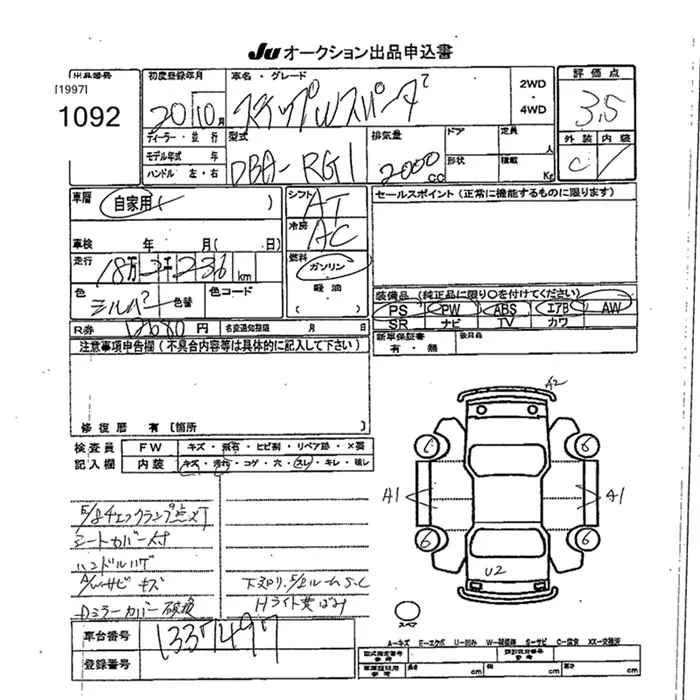 Ju オークション出品申込書
出品番号
[1997]
1092
初度登録年月
20/10月
ディーラー・並行
モデル年式 年
ハンドル 左・右
車名・グレード
ステップWスパーダ
2WD
・
4WD
評価点
3.5
外装 内装
C
型式
DBA-RG1
排気量
2000
cc
ドア
形状
定員
人
積載
Kg
車歴
自家用 ( )
車検 年 月( 日)
走行
18万2千236 km
色
シルバー 色替
色コード
シフト
AT
冷房
AC
燃料
ガソリン
軽油
( )
セールスポイント (正常に機能するものに限ります)
装備品 (純正品に限り○を付けてください)
PS PW ABS エアB AW
SR ナビ TV カワ
新車保証書
有・無
R券 12680 円
名変通知期限 月 日
注意事項申告欄 (不具合内容等は具体的に記入して下さい)
修復歴 有 [箇所 ]
検査員
記入欄
FW キズ・飛石・ヒビ割・リペア跡・×要
内装 キズ・汚れ・コゲ・穴・スレ・キレ・破レ
E/gチェックランプ点灯
シートカバー付
ハンドルハゲ
A/Wサビ キズ
Dミラーカバー破損
下廻り、E/gルームS.C
Hライト黄ばみ
A2
6 6
A1 A1
6 6
U2
スペア
車台番号 1337497
登録番号
A-キズ E-エクボ U-凹み W-補修跡 S-サビ C-腐食 XX-交換済
長さ cm 幅 cm 高さ cm